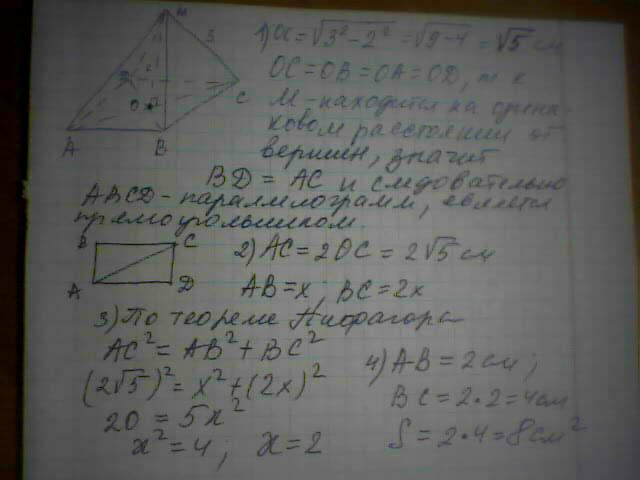 M
3
D
2
C
O
A
B
1) OC = √3²-2² = √9-4 = √5 см
OC=OB=OA=OD, т к
M - находится на одина-
ковом расстоянии от
вершин, значит
BD = AC и следовательно
ABCD - параллилограмм, является
прямоугольником.
B
C
A
D
2) AC = 2OC = 2√5 см
AB=x; BC=2x
3) По теореме Пифагора
AC² = AB² + BC²
(2√5)² = x² + (2x)²
20 = 5x²
x² = 4; x = 2
4) AB = 2см;
BC = 2·2 = 4см
S = 2·4 = 8см²